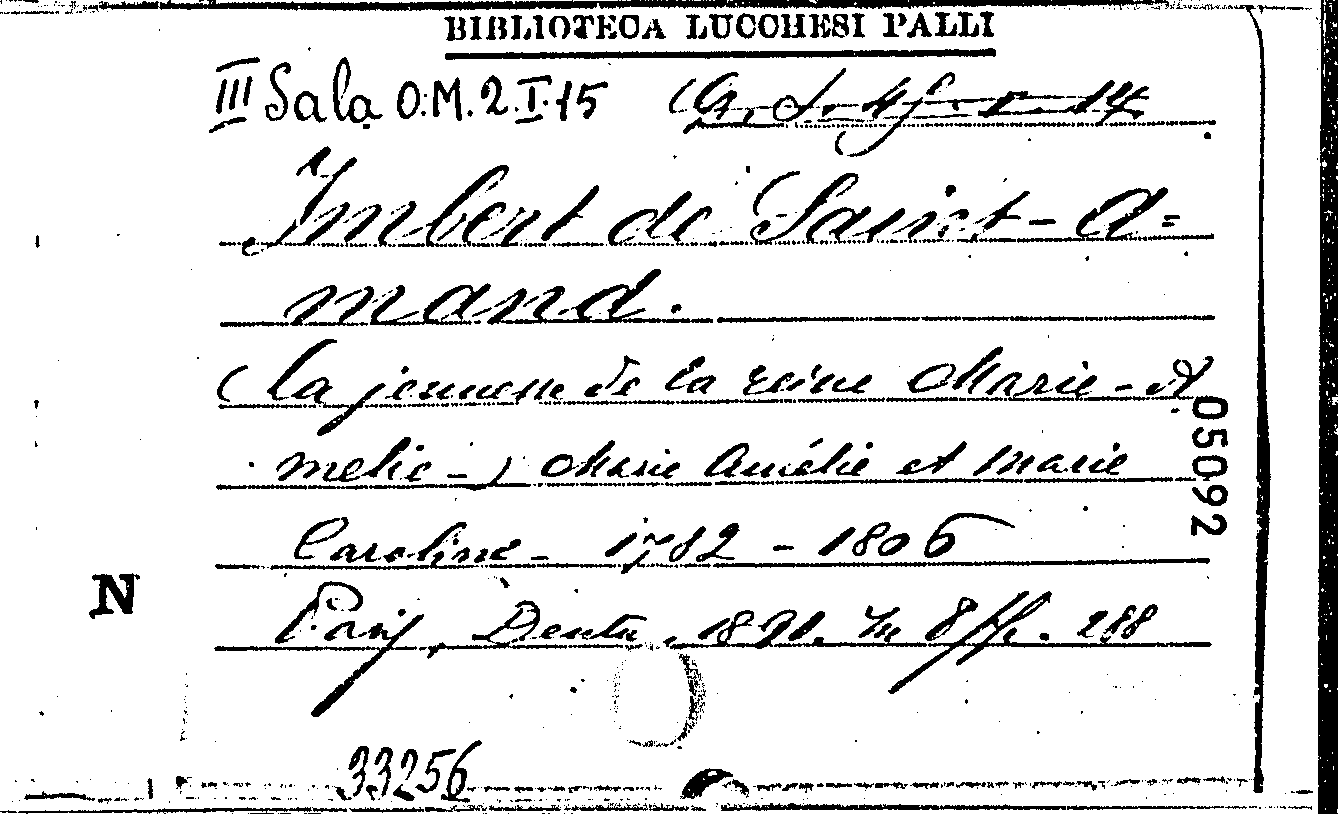 BIBLIOTECA LUCCHESI PALLI
III Sala O.M.2.I.15
Imbert de Saint-A=
mand.
(la jeunesse de la reine Marie-A
melie-) Marie Amélie et Marie
Caroline- 1782 - 1806
Paris, Dentu. 1891. In 8 pp. 288
05092
N
33256